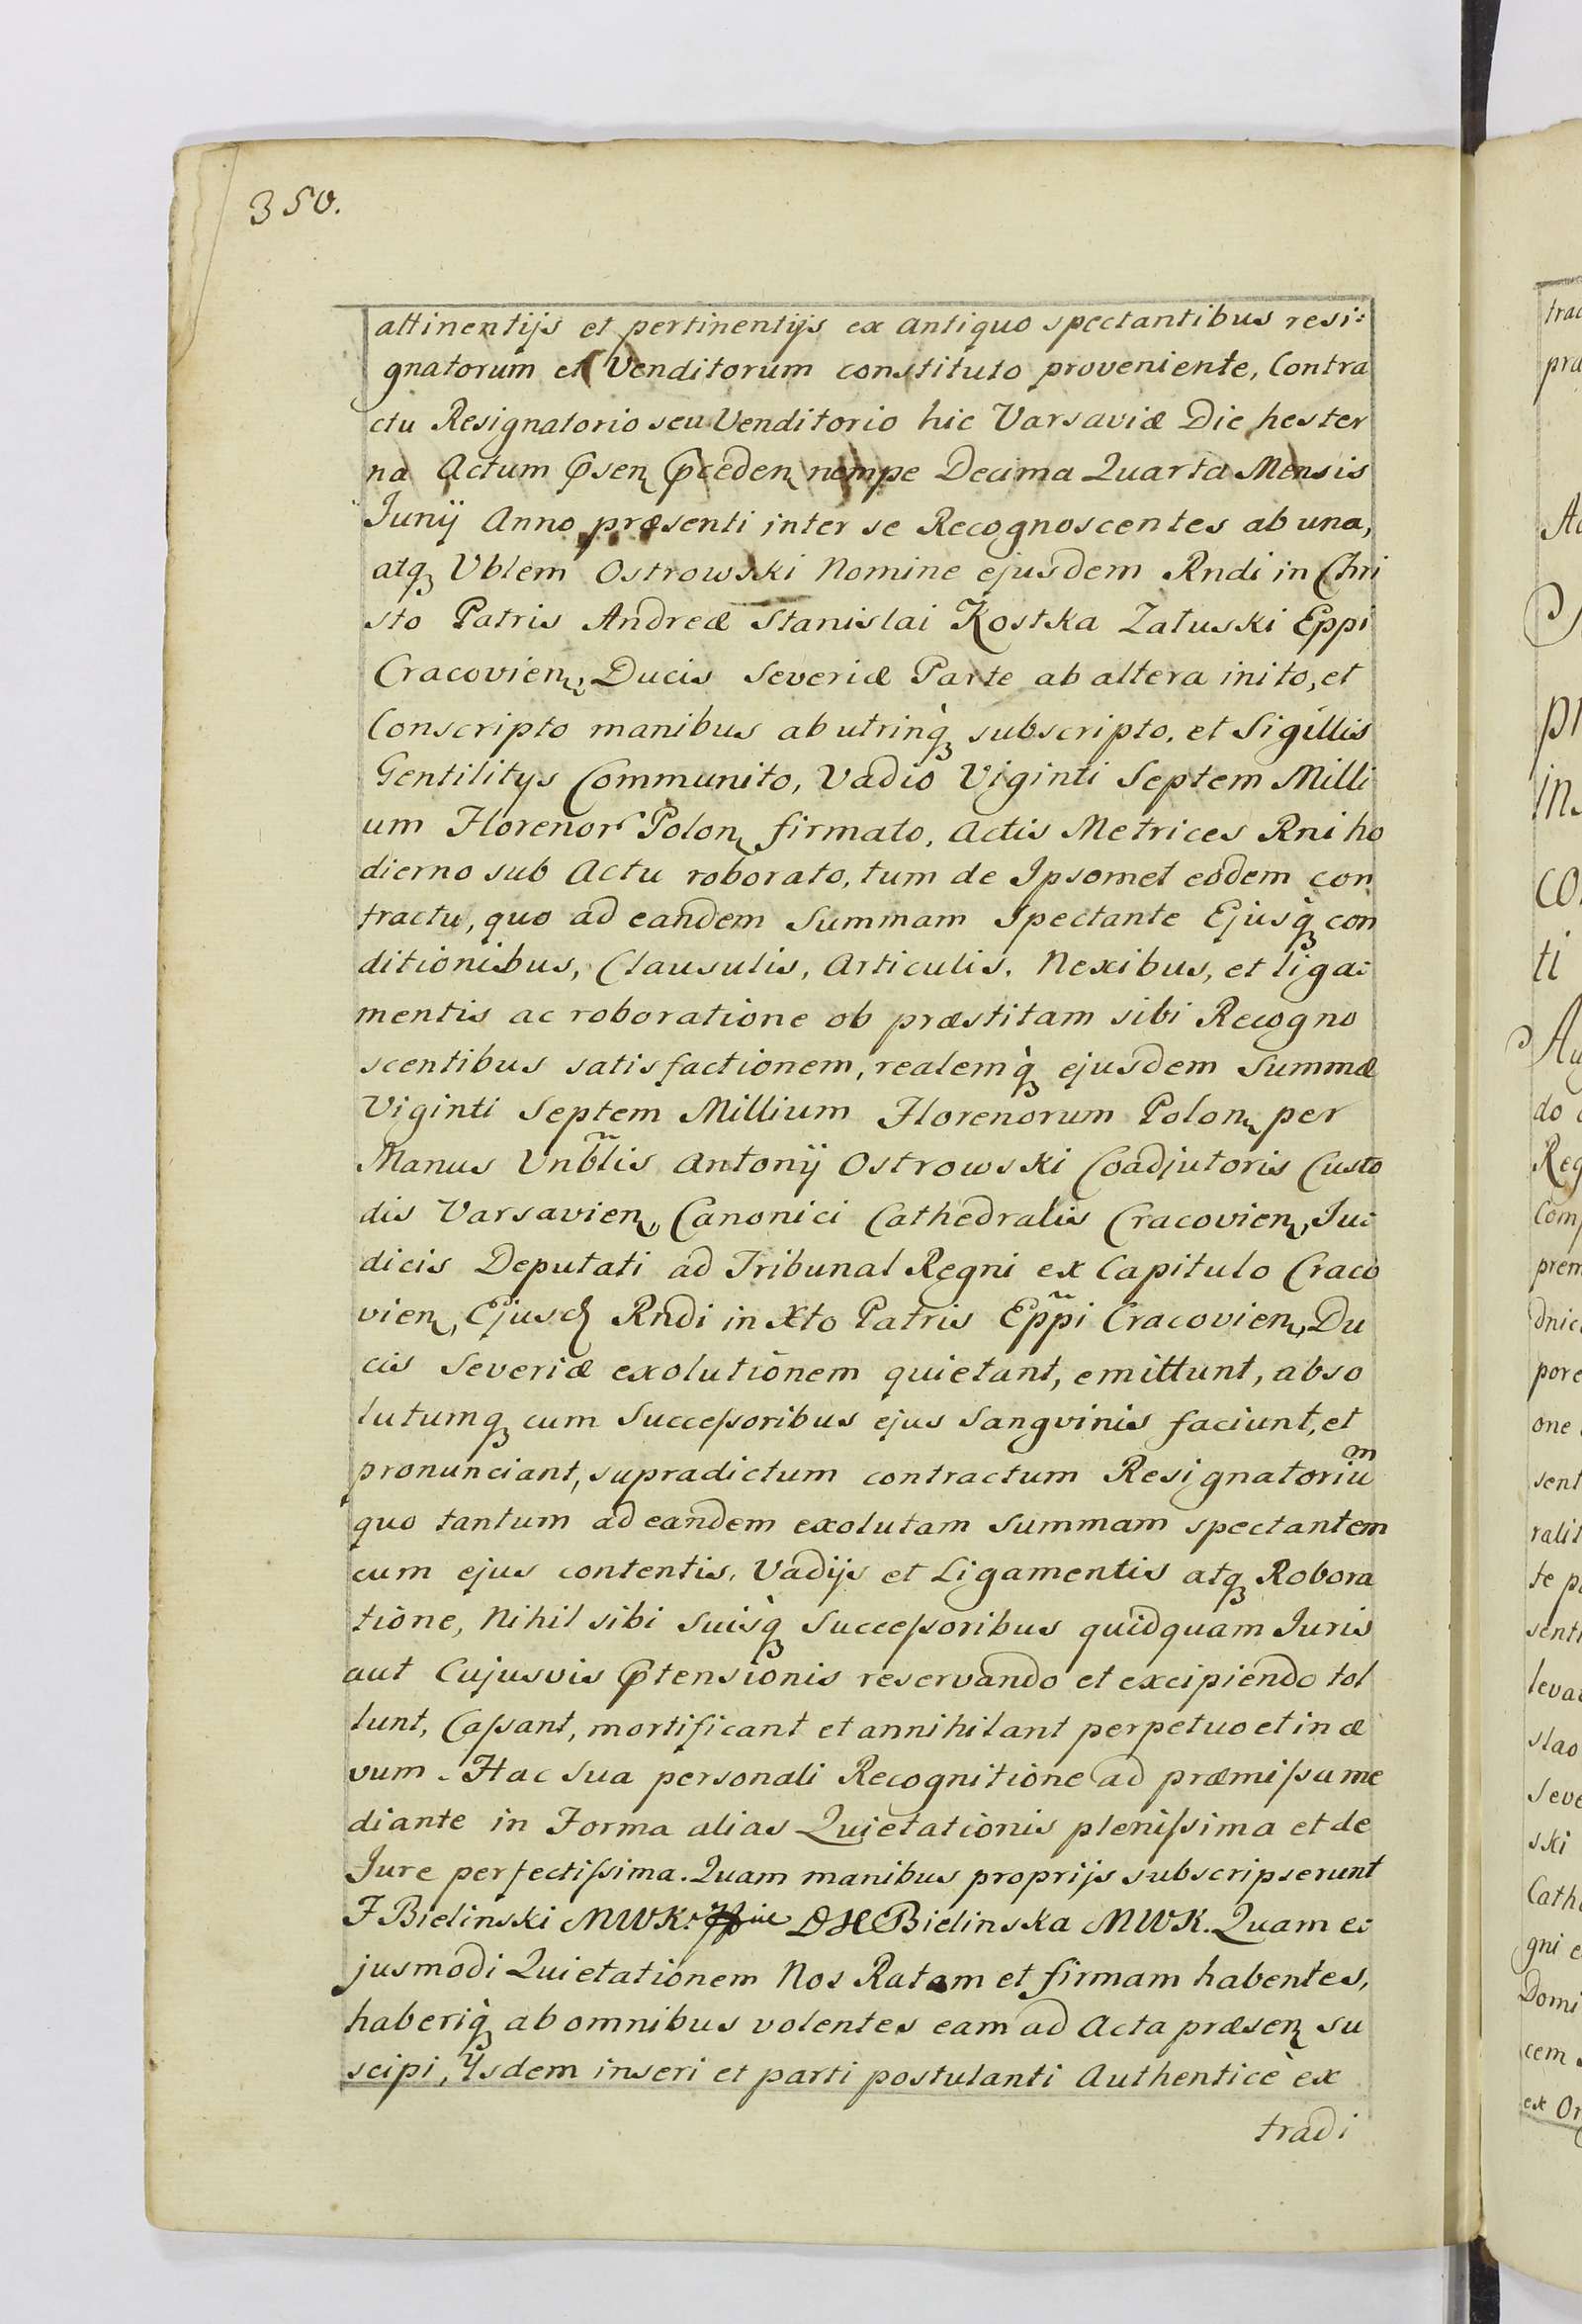 350.
attinentijs et pertinentijs ex antiquo spectantibus resi:
gnatorum et Venditorum constituto proveniente, Contra
ctu Resignatorio seu Venditorio hic Varsaviæ Die hester
na Actum Psen Pceden nempe Decima Quarta Mensis
Junij Anno præsenti inter se Recognoscentes ab una,
atq Vblem Ostrowski Nomine ejusdem Rndi in Chri
sto Patris Andreæ Stanislai Kostka Załuski Eppi
Cracovien, Ducis Severiæ Parte ab altera inito, et
Conscripto manibus ab utrinq subscripto, et Sigillis
Gentilitys Communito, Vadio Viginti Septem Milli
um Florenor Polon firmato, Actis Metrices Rni ho
dierno sub Actu roborato, tum de Ipsomet eodem con
tractu, quo ad eandem Summam Spectante Ejusq con
ditionibus, Clausulis, Articulis, Nexibus, et liga:
mentis ac roboratione ob præstitam sibi Recogno
scentibus satisfactionem, realemq ejusdem Summæ
Viginti Septem Millium Florenorum Polon per
Manus Vnblis Antonij Ostrowski Coadjutoris Custo
dis Varsavien, Canonici Cathedralis Cracovien, Ju:
dicis Deputati ad Tribunal Regni ex Capitulo Craco
vien, Ejusd Rndi in Xto Patris Eppi Cracovien, Du
cis Severiæ exolutionem quietant, emittunt, abso
lutumq cum Successoribus ejus Sangvinis faciunt, et
pronunciant, supradictum contractum Resignatorium
quo tantum ad eandem exolutam Summam spectantem
cum ejus contentis, Vadijs et Ligamentis atq Robora
tione, Nihil sibi Suisq Successoribus quidquam Juris
aut Cujusvis Ptensionis reservando et excipiendo tol
lunt, Cassant, mortificant et annihilant perpetuo et in æ
vum. Hac Sua personali Recognitione ad præmissa me
diante in Forma alias Quietationis plenissima et de
Jure perfectissima. Quam manibus proprijs subscripserunt
F Bielinski MWK. DH Bielinska MWK. Quam e:
jusmodi Quietationem Nos Ratam et firmam habentes,
haberiq ab omnibus volentes eam ad Acta præsen su
scipi, Ysdem inseri et parti postulanti Authenticè ex
tradi